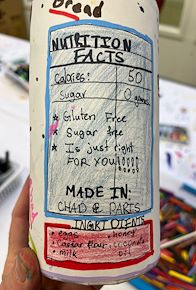 Bread
NUTRITION
FACTS
Calories: 50
Sugar 0 grams
* Gluten Free
* Sugar free
* Is just right
FOR YOU!
MADE IN:
CHAD & PARIS
• eggs • honey
• milk oil